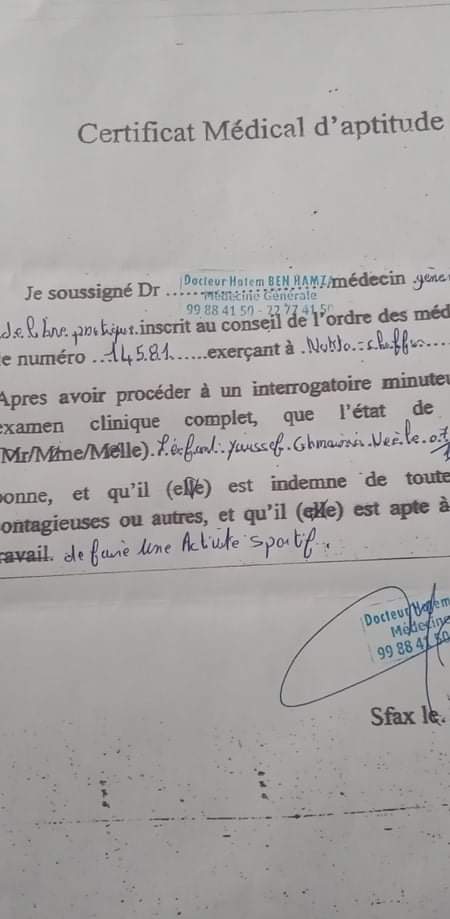 Certificat Médical d'aptitude
Je soussigné Dr ........ Docteur Hatem BEN HAMZA médecin géne
Médecine Générale
99 88 41 50 - 22 77 41 50
de libre pratique inscrit au conseil de l'ordre des méd
e numéro ..14581......exerçant à .
Apres avoir procéder à un interrogatoire minuteu
examen clinique complet, que l'état de
(Mr/Mme/Melle). l'enfant: Youssef
bonne, et qu'il (elle) est indemne de toute
contagieuses ou autres, et qu'il (elle) est apte à
ravail. de faire une Activite sportif
Docteur Hatem
Médecine
99 88 41 50
Sfax le.